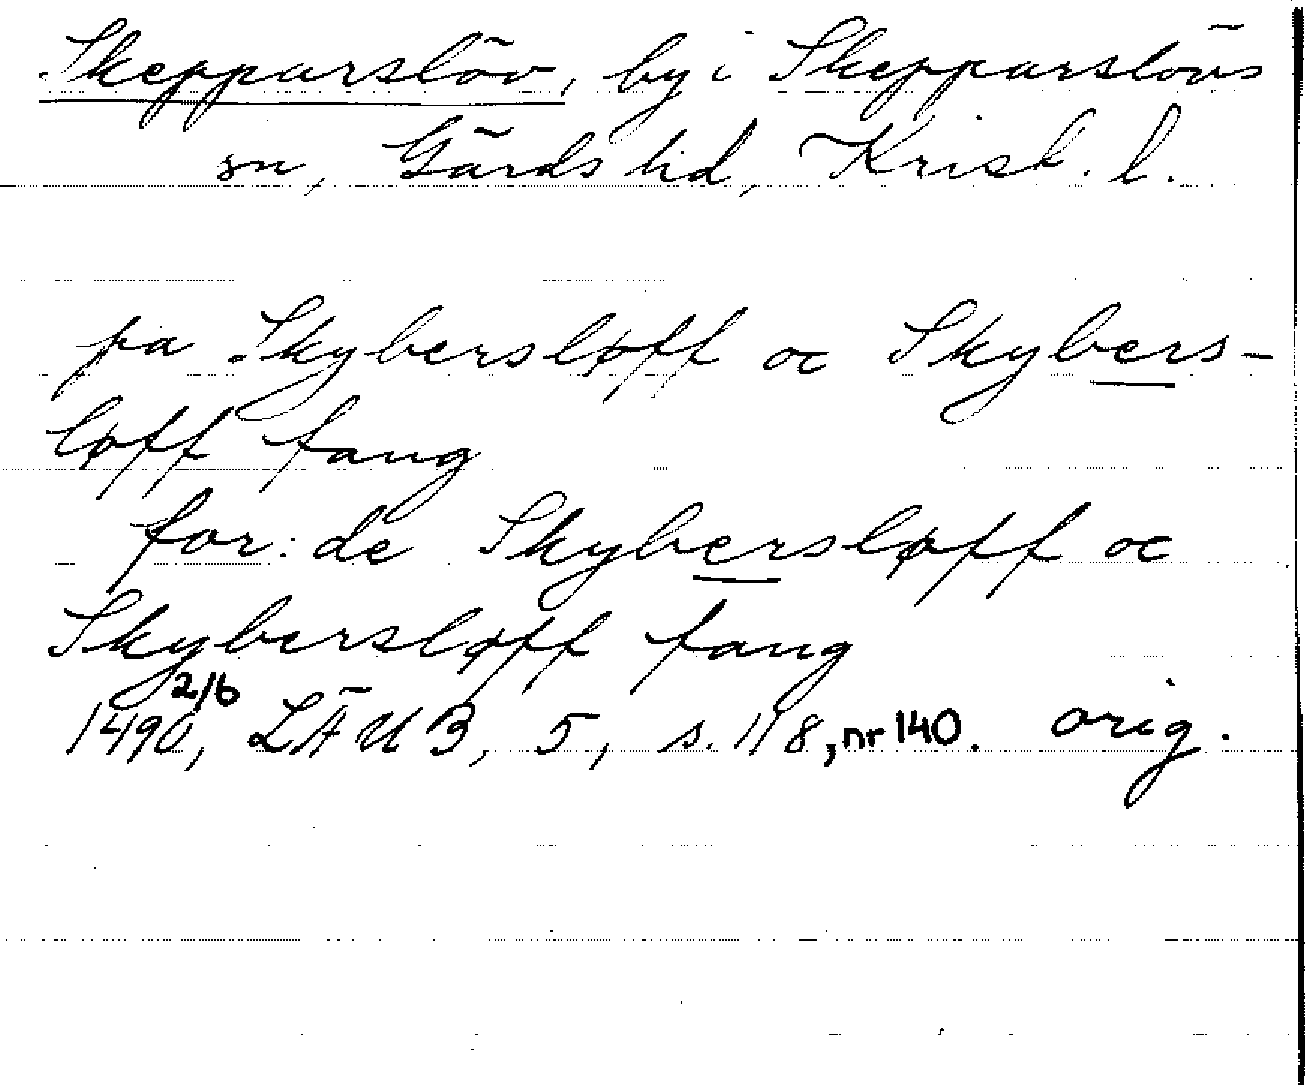 Skepparslöv, by i Skepparslövs
sn, Gärds hd, Krist. l.
pa Skybersløff oc Skybers-
løff fang
for: de Skybersløff oc
Skybersløff fang
1490 2/6, LÄUB, 5, s. 118, nr 140. orig.